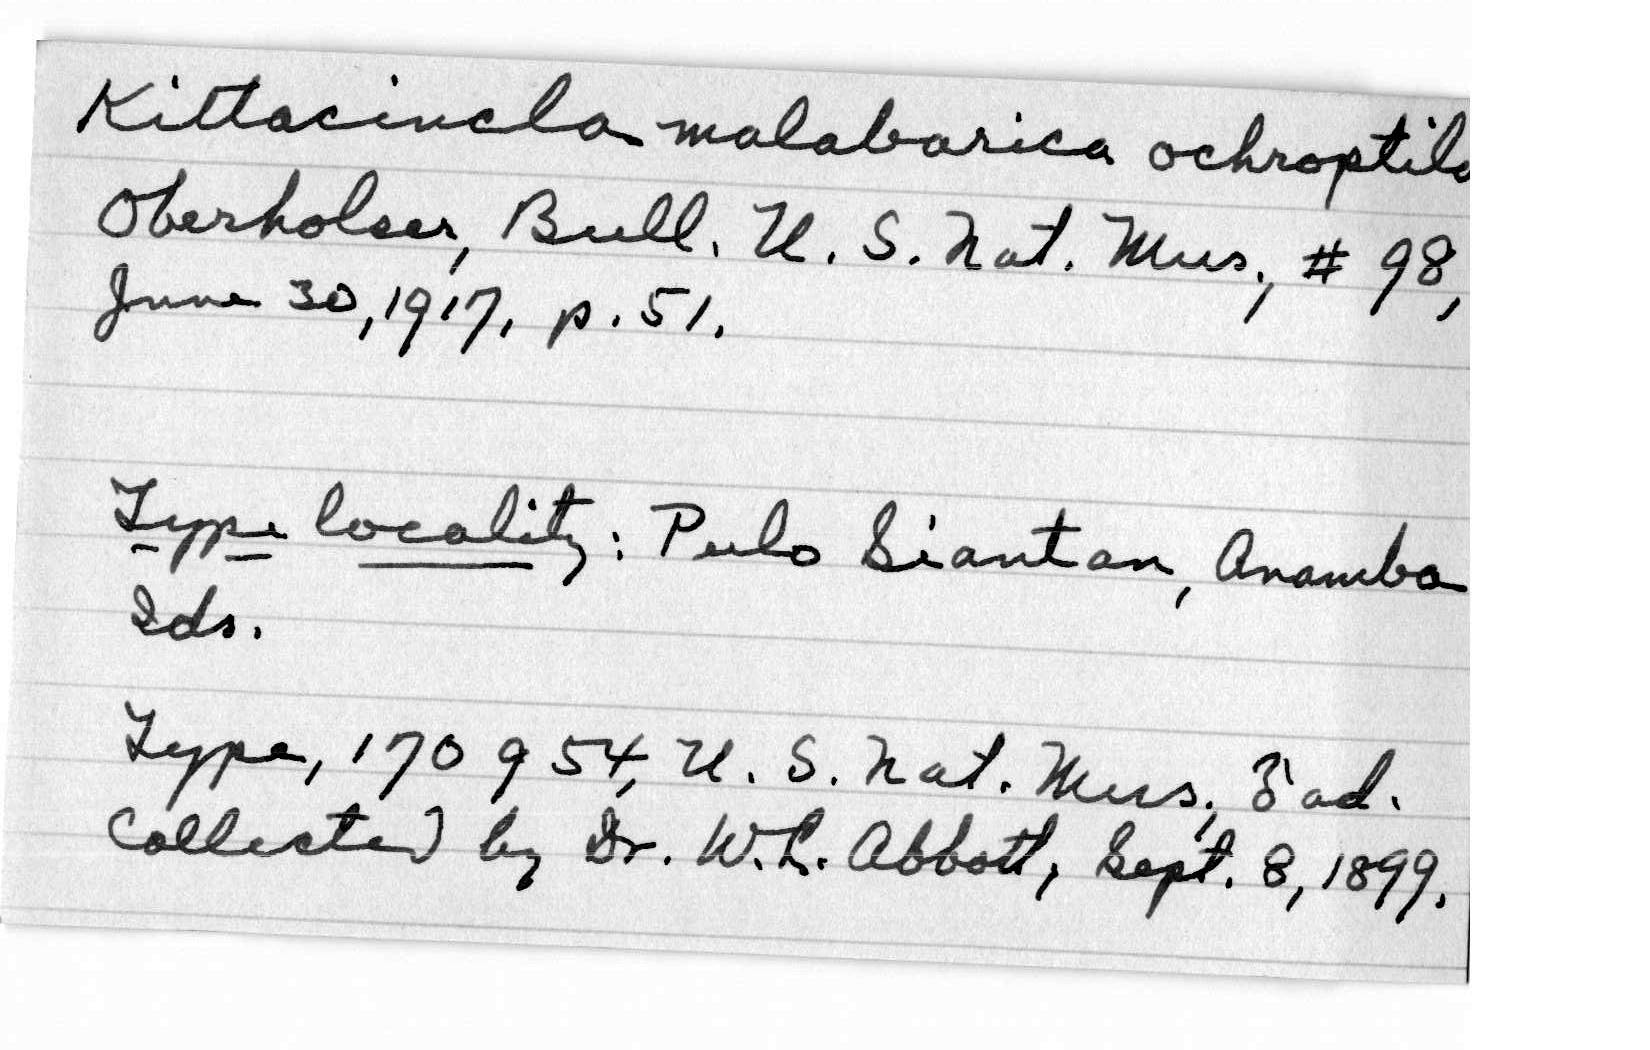 Kittacincla malabarica ochroptila
Oberholser, Bull. U. S. Nat. Mus., # 98,
June 30, 1917, p. 51.
Type locality: Pulo Siantan, Anamba
Ids.
Type, 170954, U. S. Nat. Mus., ♂ ad.
Collected by Dr. W. L. Abbott, Sept. 8, 1899.